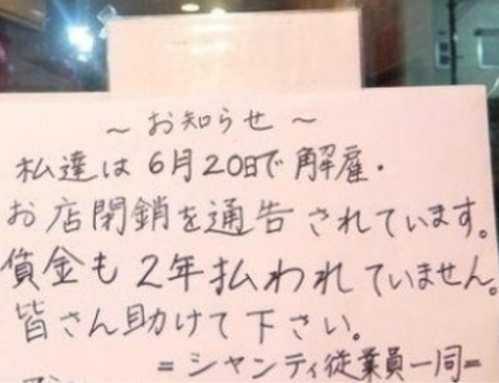 ～お知らせ～
私達は6月20日で解雇・
お店閉鎖を通告されています。
賃金も2年払われていません。
皆さん助けて下さい。
=シャンティ従業員一同=